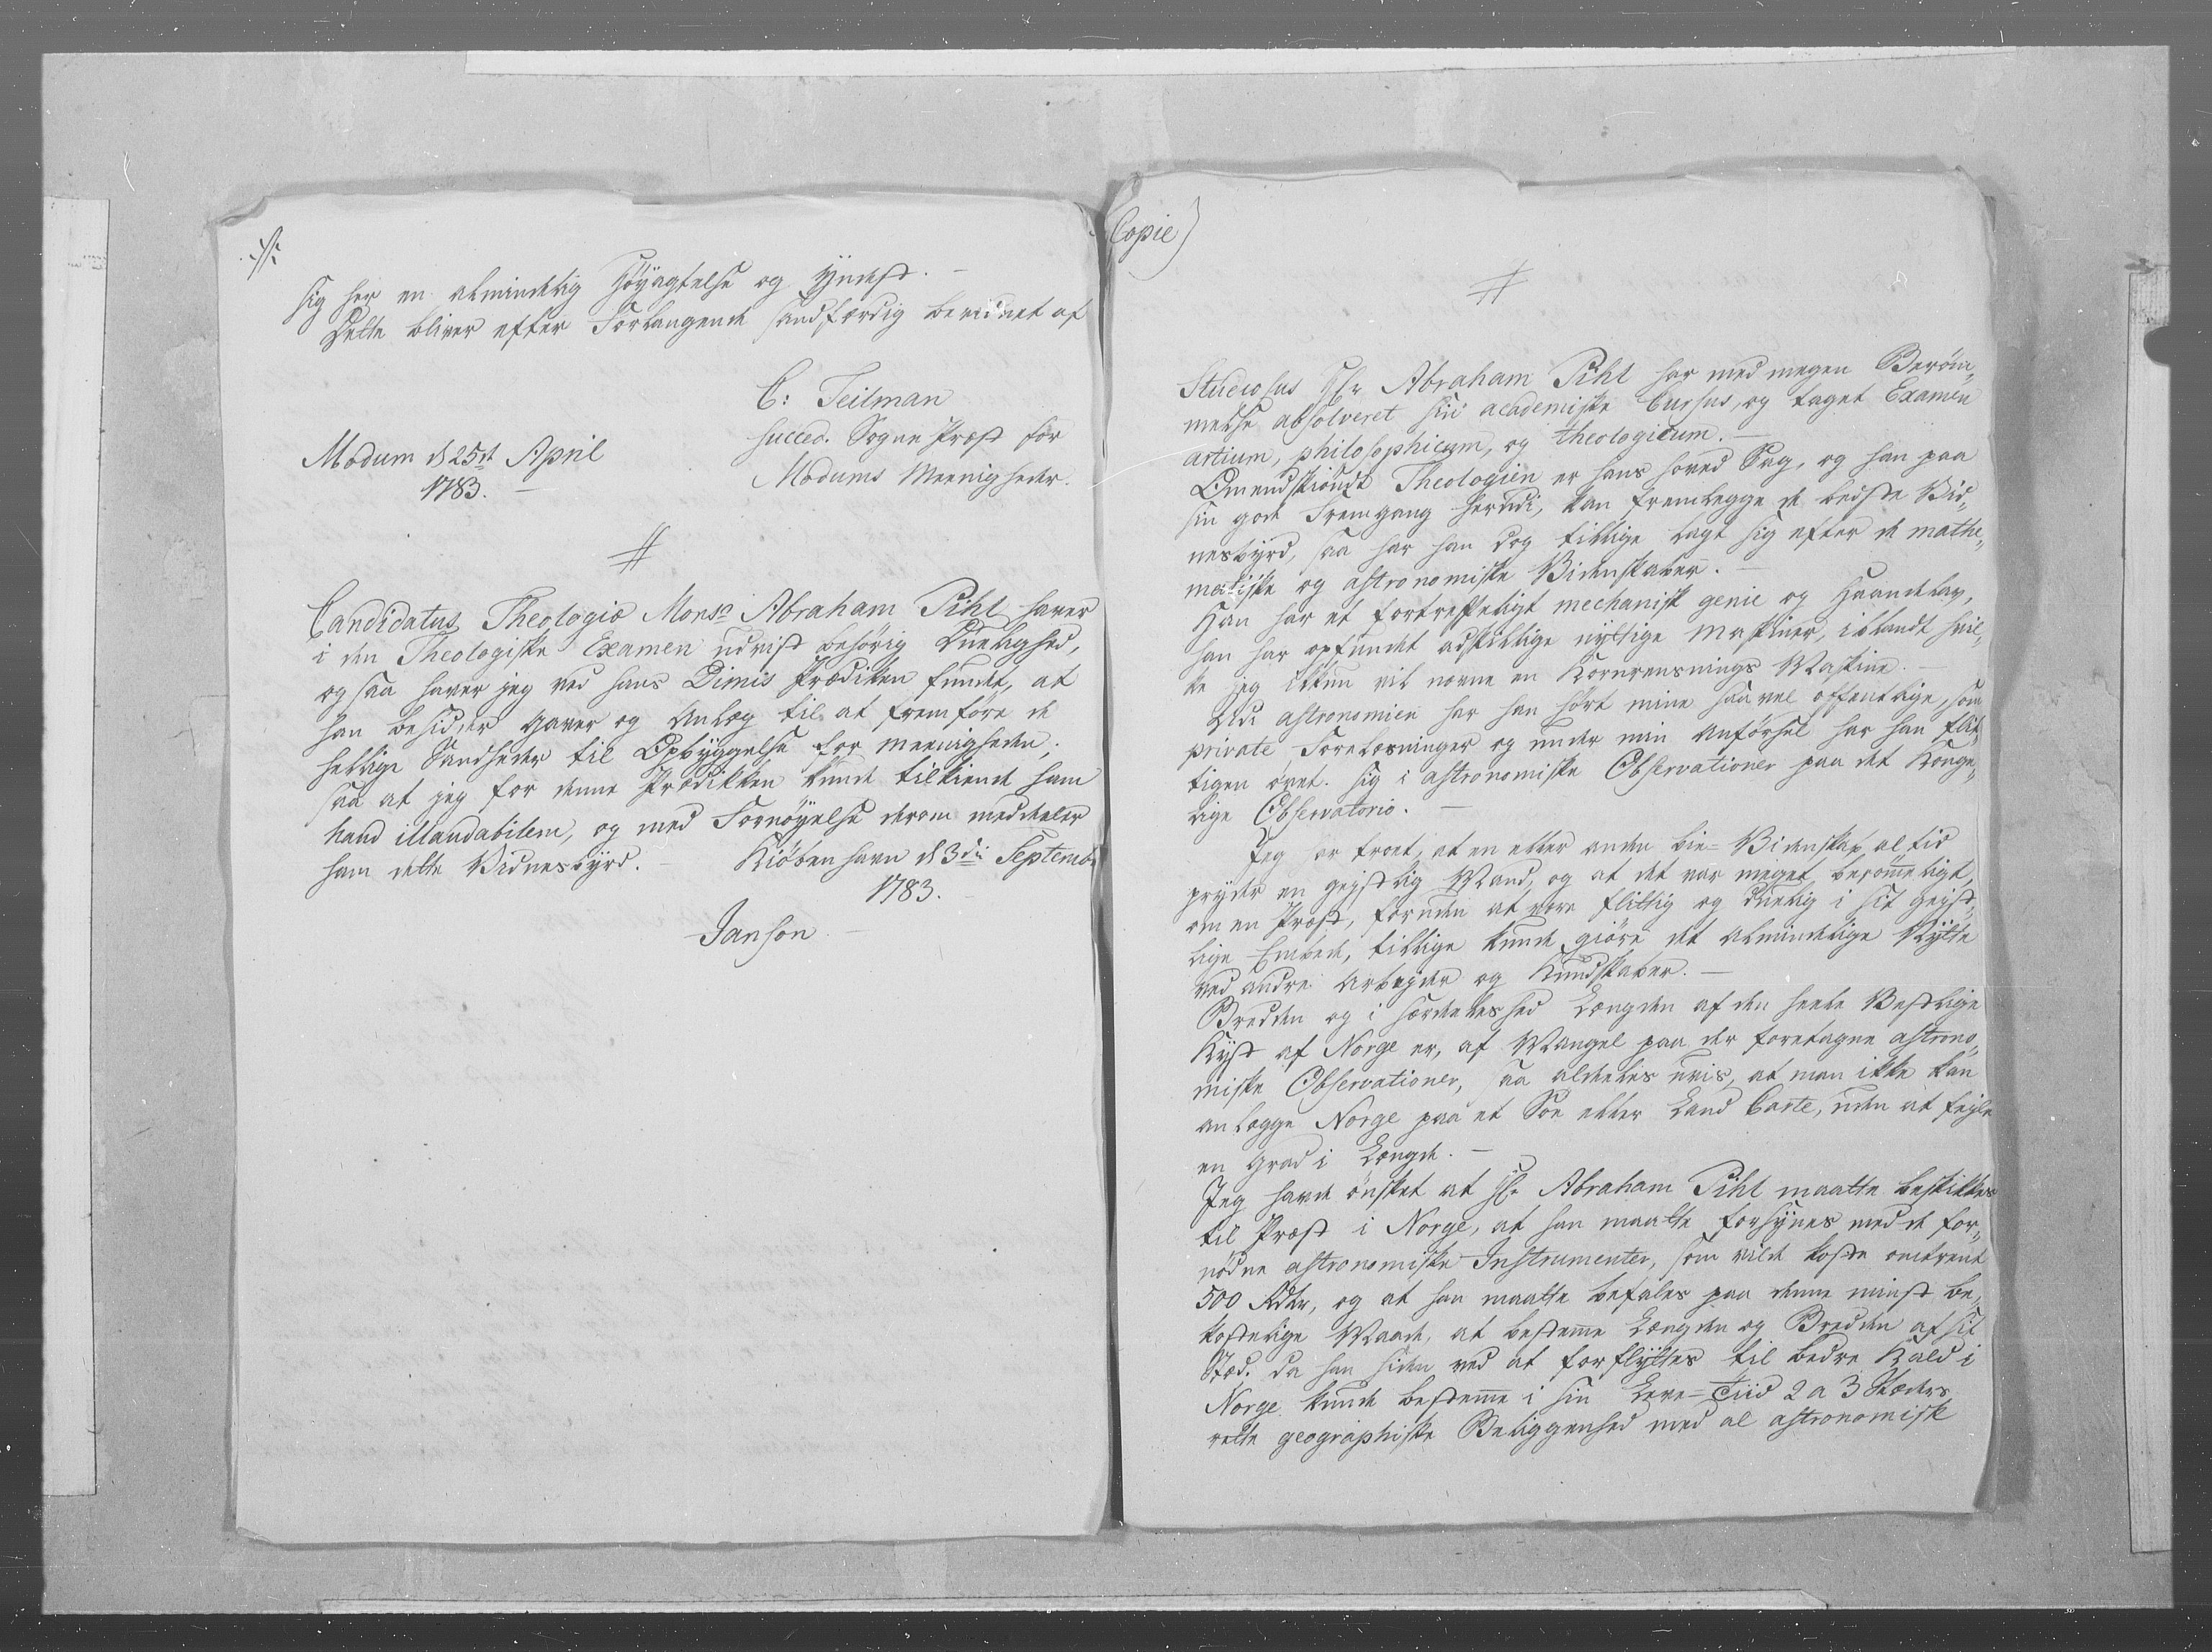 ./.
sig her en almindelig Høyagtelse og Yndest. -
Dette bliver efter Forlangende sandfærdig bevidnet af
C: Teilman
Modum d 25de April
succed. Sogne Præst for
1783. -
Modums Meenigheder.
#
Candidatus Theologiæ Monsr Abraham Pihl haver
i den Theologiske Examen udvist behörig Duelighed,
og saa haver jeg ved hans Dimis Prædiken fundet, at
han besidder Gaver og Anlæg til at fremføre de
hellige Sandheder til Opbyggelse for meenigheden,
saa at jeg for denne Prædikken kunde tilkiende ham
haud illaudabilem, og med Fornöyelse derom meddeeler
ham dette Vidnesbyrd. - Kiöbenhavn d 3die Septembr
1783.
Janson
Copie)
#
Studiosus Hr Abraham Pihl har med megen Beröm„
melse absolveret sin academiske Cursus, og taget Examen
artium, philosophicum, og theologicum. -
Omendskiöndt Theologien er hans hoved Sag, og han paa
sin gode Fremgang herudi, kan fremlegge de bedste Vid„
nesbyrd, saa har han dog tillige lagt sig efter de mathe„
matiske og astronomiske Videnskaber. -
Han har et fortreffeligt mechanisk genie og Haandelav,
han har opfundet adskillige nyttige Maskiner, iblandt hvil„
ke jeg ikkun vil nævne en Kornrensnings Maskine. -
Udi astronomien har han hört mine saa vel offentlige, som
private Forelæsninger og under min Anförsel har han flit„
tigen övet sig i astronomiske Observationer paa det Konge„
lige Observatorio. -
Jeg er troet, at en eller anden bie-Videnskab altid
pryder en geistlig Mand, og at det var meget berömmeligt,
om en Præst, foruden at være flittig og duelig i sit geist„
lige Embede, tillige kunde giöre det almindelige Nytte
ved andre Arbeyder og Kundskaber. -
Bredden og i særdeleshed Længden af den heele Vestlige
Kyst af Norge er, af Mangel paa der foretagne astrono„
miske Observationer, saa aldeeles uvis, at man ikke kan
anlægge Norge paa et Söe eller Land Carte, uden at fejle
en Grad i Længde. -
Jeg havde önsket at Hr Abraham Pihl maatte beskikkes
til Præst i Norge, at han maatte forsynes med de for„
nödne astronomiske Instrumenter, som vilde koste omtrent
500 Rdlr, og at han maatte befales paa denne minst be„
kostelige Maade, at bestemme Længden og Bredden af sit
Sted. da han siden ved at forflyttes til bedre Kald i
Norge kunde bestemme i sin Leve-Tiid 2 a 3 Stæders
rette geographiske Beliggenhed med al astronomisk